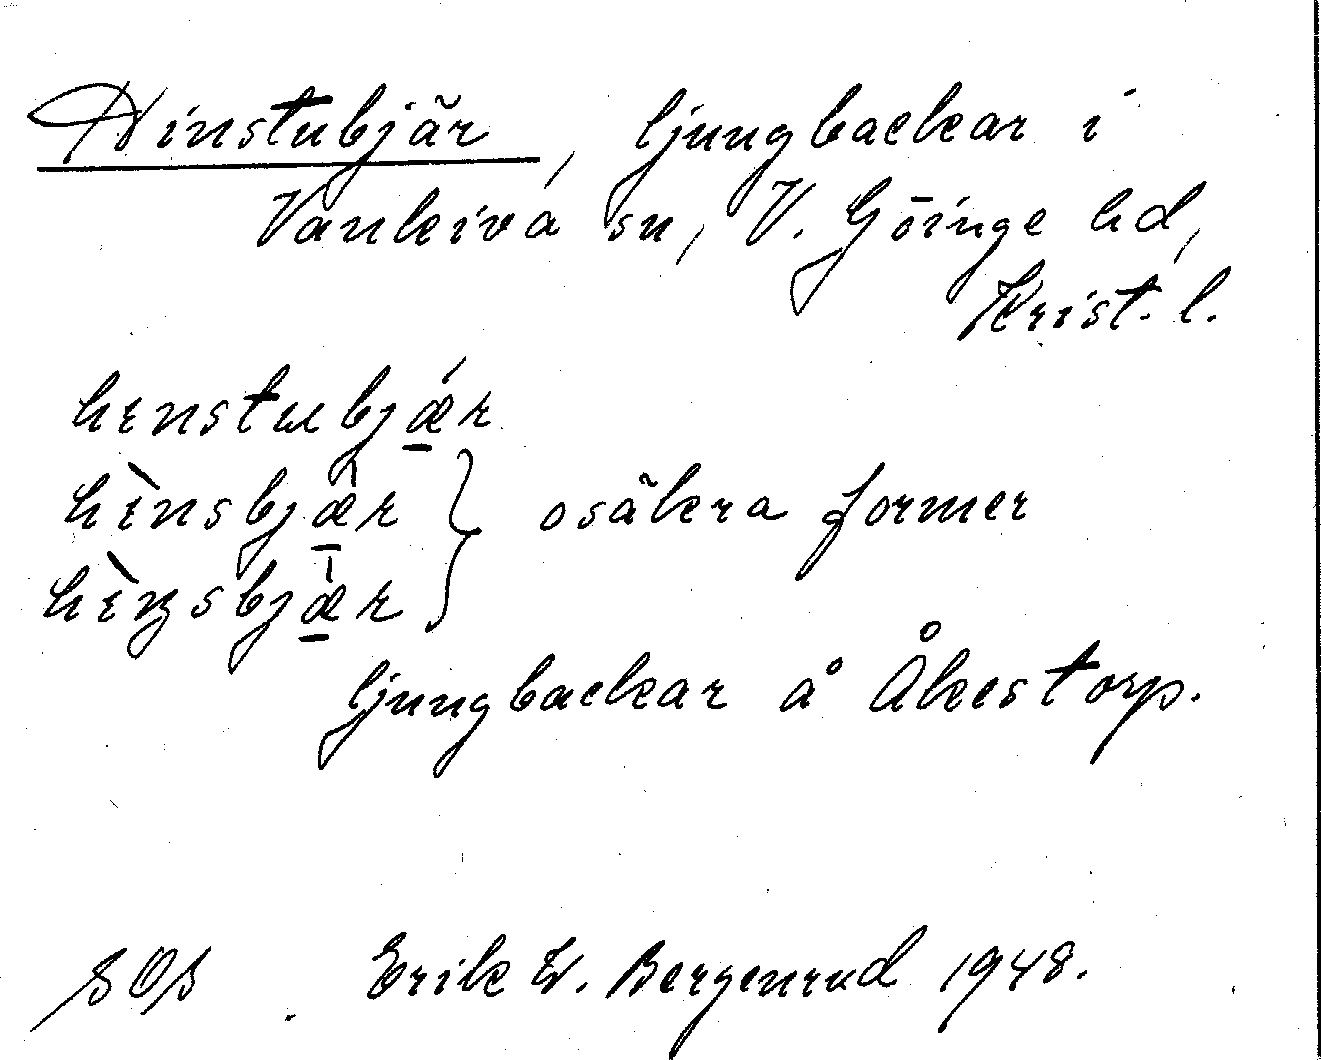 Hinstubjär, ljungbackar i
Vankiva sn, V. Göinge hd,
Krist. l.
hɛnstɯbjǽ̠r
hɛ̀nsbjæ̠̀r } osäkra former
hɛ̀ŋsbjæ̠̀r
ljungbackar å Åkestorp.
SOS Erik W. Bergenrud 1948.